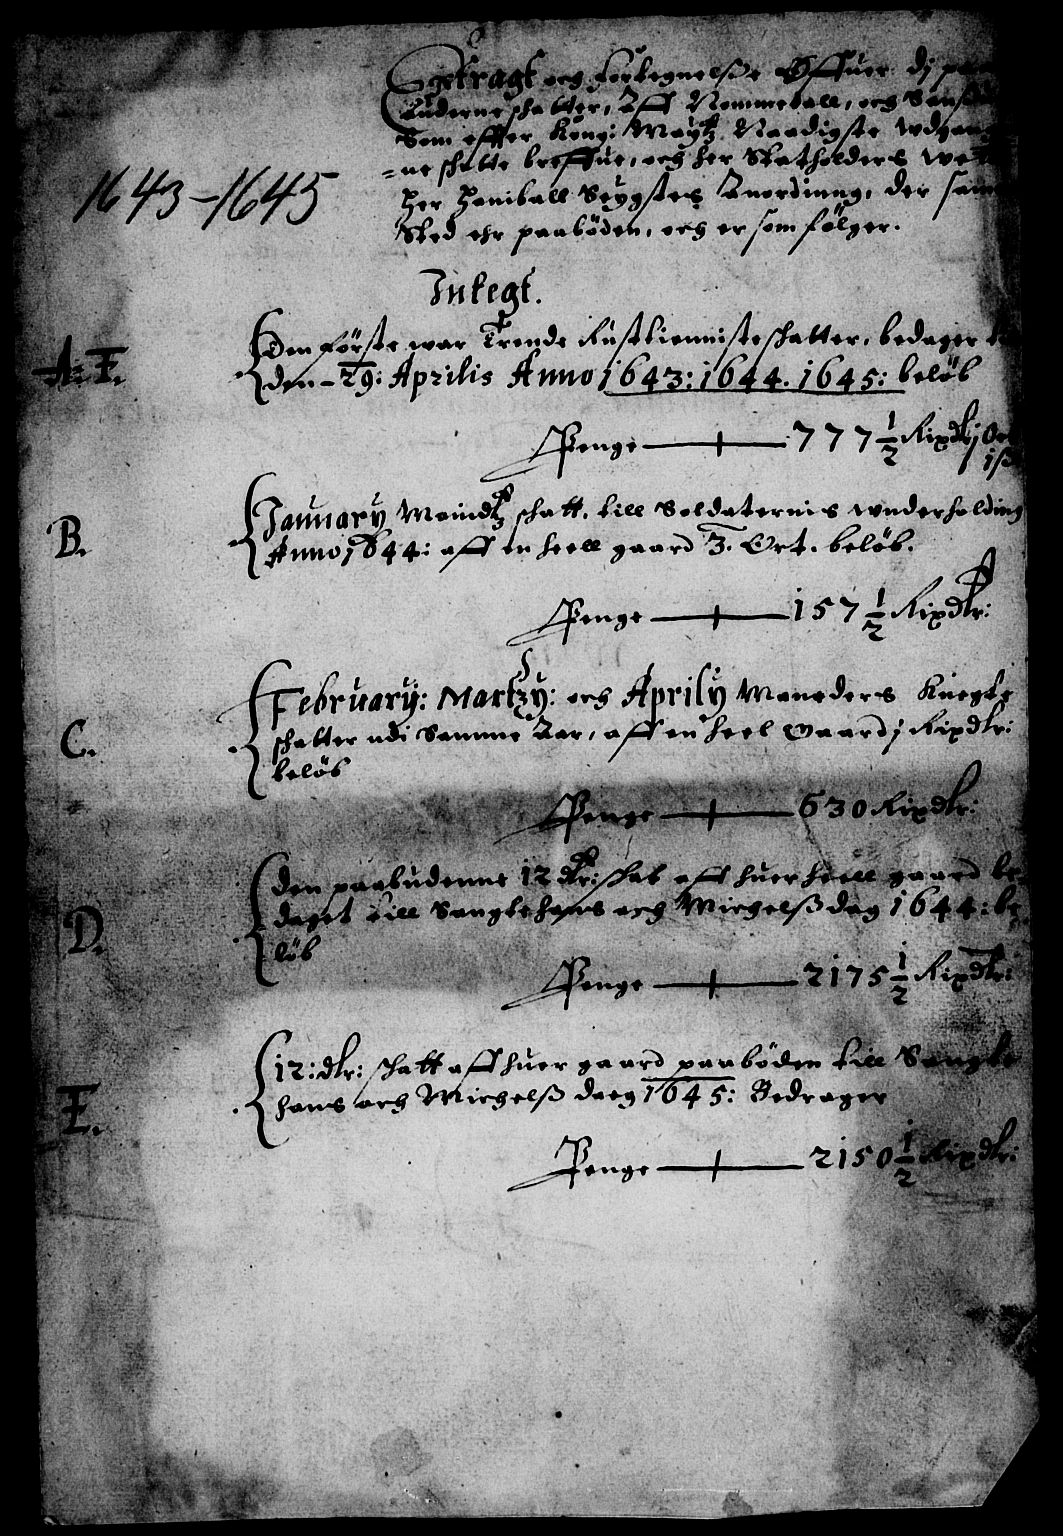 Extragt och fortegnelße Offuer dj paa
budenne schatter, Aff Nommedall, och Sønd
Som effter Kong: Maytz Naadigste wdgang
=ne schatte breffue, och her Statholders Well
Her Haniball Seigsteds Anordinng, der samme
Sted ehr paabøden, och er som følger.
1643-1645
Integt.
A: F. Den første war Trende Rustienniste schatter, bedager till
den 29: Aprilis Anno 1643: 1644. 1645: beløb
Penge 777 1/2 Rixdlr j Ort
1 ß
B. January Maindtz schatt, till Soldaternis wnderholding
Anno 1644: aff en heell gaard 3. Ort. beløb.
Penge 157 1/2 Rixdlr:
C. February: Martzy: och Aprily Maneders Knegte
schatter udi Samme Aar, aff en heel Gaard j Rixdlr:
beløb
Penge 630 Rixdlr:
D. den paabudenne 12 dlr: schat aff huer heell gaard be
daget till Sanctehans och Michelß dag 1644: be
løb
Penge 2175 1/2 Rixdlr:
E. 12: dlr: schatt aff huer gaard paabøden till Sancte
hans och Michelß daeg 1645: Bedrager
Penge 2150 1/2 Rixdlr: